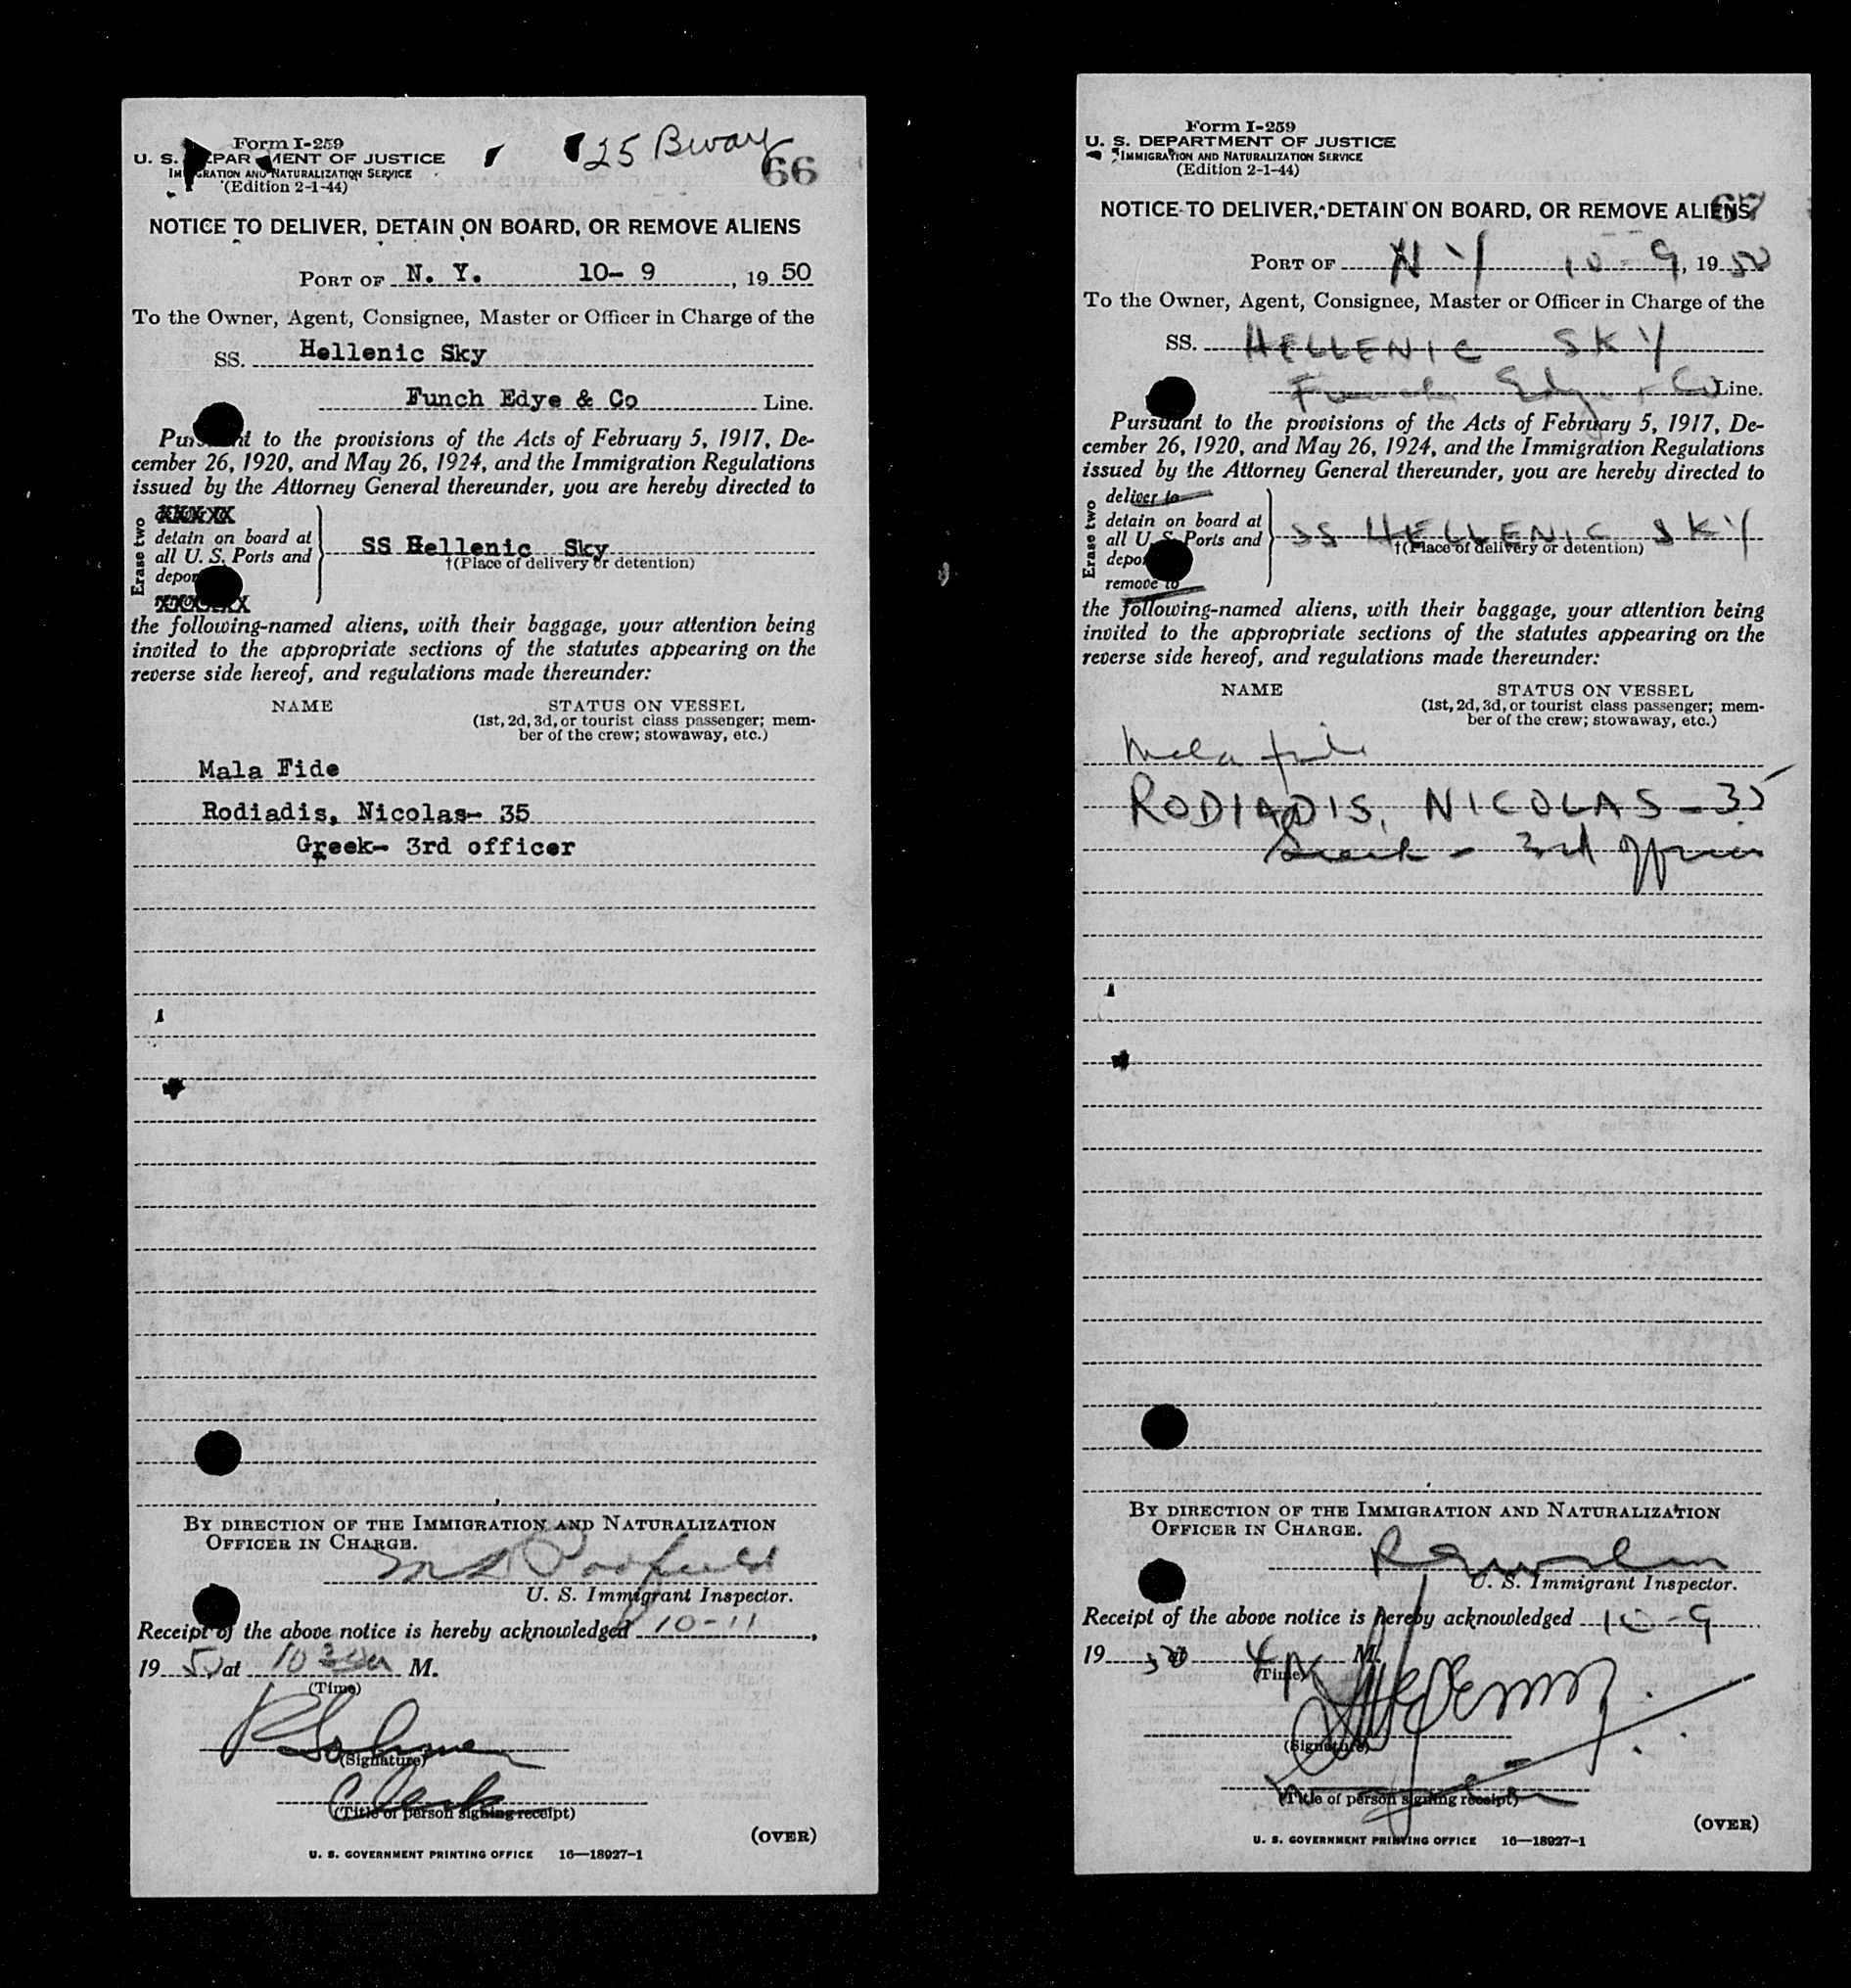 Form I-259
25 Bway
U. S. DEPARTMENT OF JUSTICE
66
IMMIGRATION AND NATURALIZATION SERVICE
(Edition 2-1-44)
NOTICE TO DELIVER, DETAIN ON BOARD, OR REMOVE ALIENS
PORT OF N. Y. 10- 9, 19 50
To the Owner, Agent, Consignee, Master or Officer in Charge of the
SS. Hellenic Sky
Funch Edye & Co Line.
Pursuant to the provisions of the Acts of February 5, 1917, De-
cember 26, 1920, and May 26, 1924, and the Immigration Regulations
issued by the Attorney General thereunder, you are hereby directed to
Erase two
XXXXX
detain on board at
all U. S. Ports and
SS Hellenic Sky
†(Place of delivery or detention)
depor
XXXXXX
the following-named aliens, with their baggage, your attention being
invited to the appropriate sections of the statutes appearing on the
reverse side hereof, and regulations made thereunder:
NAME STATUS ON VESSEL
(1st, 2d, 3d, or tourist class passenger; mem-
ber of the crew; stowaway, etc.)
Mala Fide
Rodiadis, Nicolas- 35
Greek- 3rd officer
BY DIRECTION OF THE IMMIGRATION AND NATURALIZATION
OFFICER IN CHARGE.
U. S. Immigrant Inspector.
Receipt of the above notice is hereby acknowledged 10-11,
19 50 at 10 30 M.
(Time)
(Signature)
Clerk
(Title of person signing receipt)
(OVER)
U. S. GOVERNMENT PRINTING OFFICE 16—18927-1
Form I-259
U. S. DEPARTMENT OF JUSTICE
IMMIGRATION AND NATURALIZATION SERVICE
(Edition 2-1-44)
67
NOTICE TO DELIVER, DETAIN ON BOARD, OR REMOVE ALIENS
PORT OF N Y 10 - 9, 19 50
To the Owner, Agent, Consignee, Master or Officer in Charge of the
SS. HELLENIC SKY
Funch Edye & Co Line.
Pursuant to the provisions of the Acts of February 5, 1917, De-
cember 26, 1920, and May 26, 1924, and the Immigration Regulations
issued by the Attorney General thereunder, you are hereby directed to
Erase two
deliver to
detain on board at
all U. S. Ports and
SS HELLENIC SKY
†(Place of delivery or detention)
depo
remove to
the following-named aliens, with their baggage, your attention being
invited to the appropriate sections of the statutes appearing on the
reverse side hereof, and regulations made thereunder:
NAME STATUS ON VESSEL
(1st, 2d, 3d, or tourist class passenger; mem-
ber of the crew; stowaway, etc.)
Mala fide
RODIADIS, NICOLAS - 35
Greek - 3rd officer
BY DIRECTION OF THE IMMIGRATION AND NATURALIZATION
OFFICER IN CHARGE.
U. S. Immigrant Inspector.
Receipt of the above notice is hereby acknowledged 10 - 9
19 50 4 P M.
(Time)
(Signature)
(Title of person signing receipt)
(OVER)
U. S. GOVERNMENT PRINTING OFFICE 16—18927-1